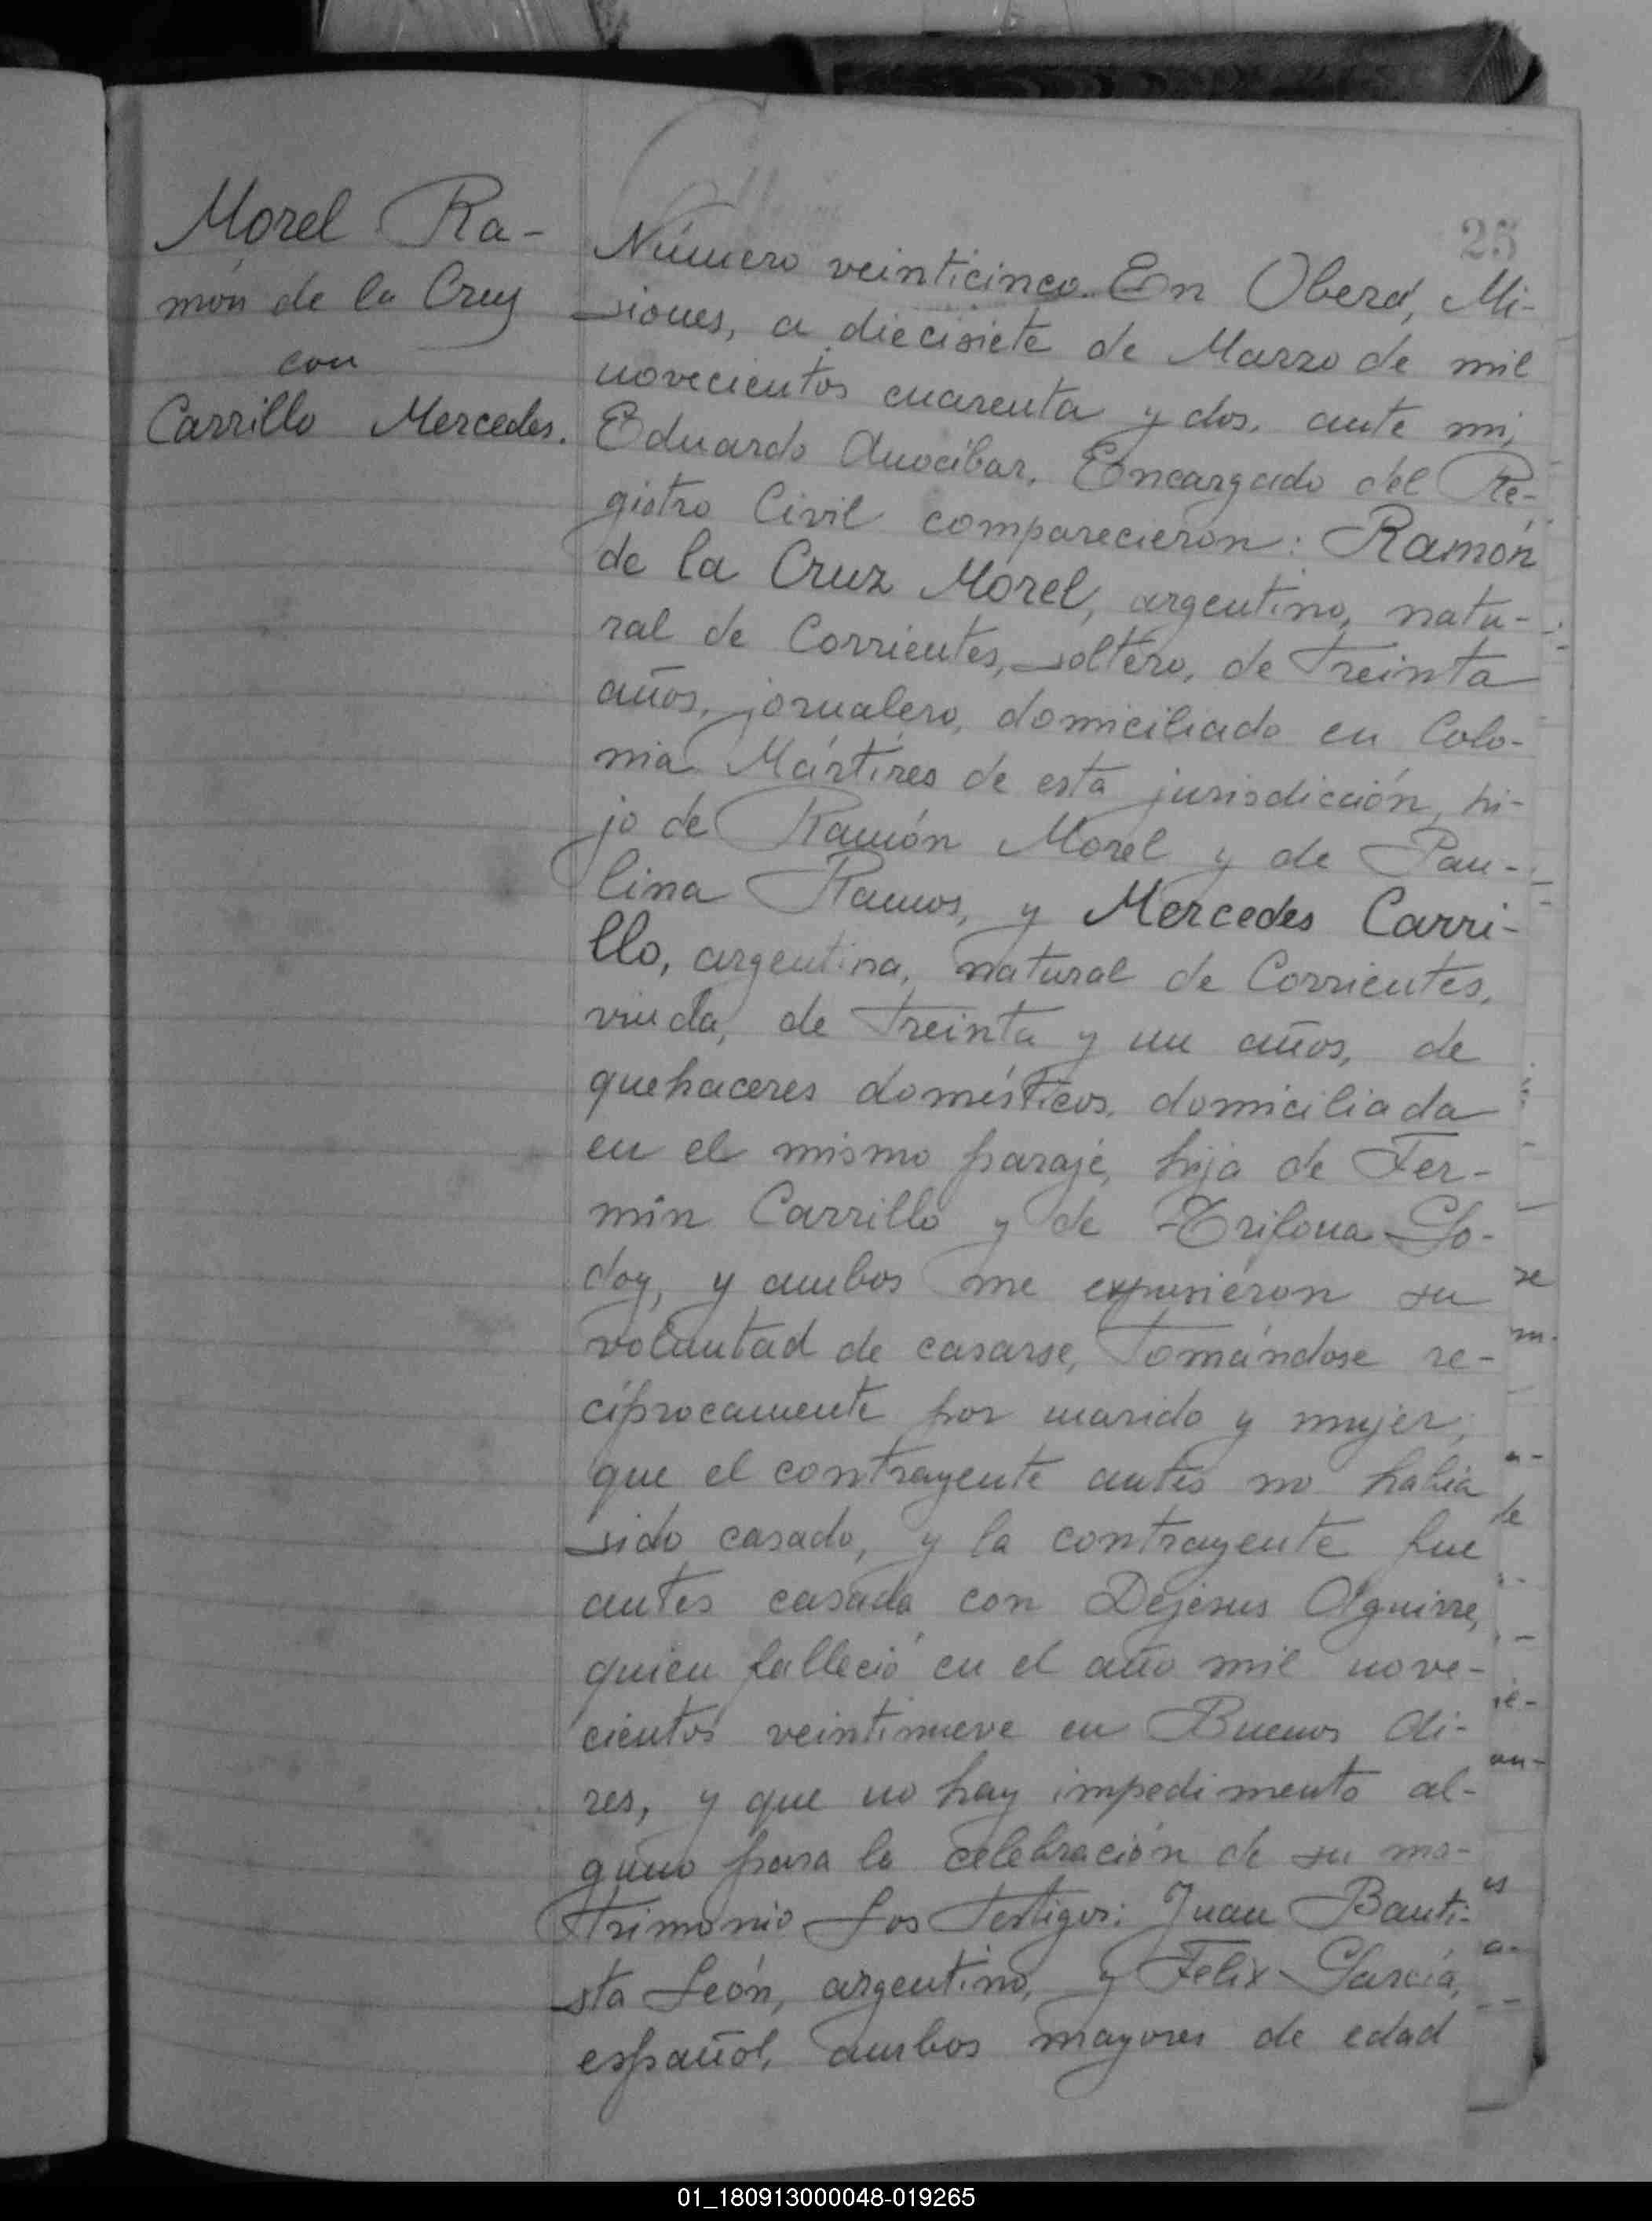 Morel Ra-
món de la Cruz
con
Carrillo Mercedes.
25
Número veinticinco. En Oberá, Mi-
siones, a diecisiete de Marzo de mil
novecientos cuarenta y dos, ante mi,
Eduardo Anocíbar, Encargado del Re-
gistro Civil comparecieron: Ramón
de la Cruz Morel, argentino, natu-
ral de Corrientes, soltero, de treinta
años, jornalero, domiciliado en Colo-
nia Mártires de esta jurisdicción, hi-
jo de Ramón Morel y de Pau-
lina Ramos, y Mercedes Carri-
llo, argentina, natural de Corrientes,
viuda, de treinta y un años, de
quehaceres domésticos, domiciliada
en el mismo paraje, hija de Fer-
mín Carrillo y de Trifona Go-
doy, y ambos me expusieron su
voluntad de casarse, tomándose re-
cíprocamente por marido y mujer;
que el contrayente antes no había
sido casado, y la contrayente fue
antes casada con Dejesus Aguirre,
quien falleció en el año mil nove-
cientos veintinueve en Buenos Ai-
res, y que no hay impedimento al-
guno para la celebración de su ma-
trimonio Los testigos: Juan Bauti-
sta León, argentino, y Felix García,
español, ambos mayores de edad
01_180913000048-019265